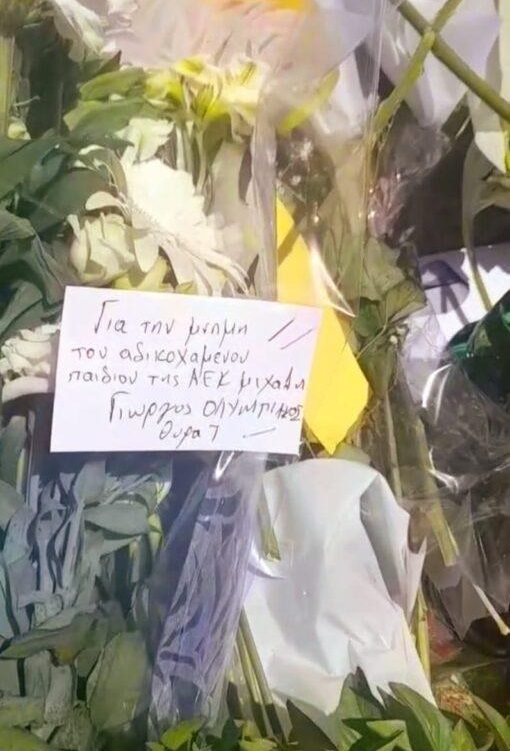 Για την μνημη
του αδικοχαμενου
παιδιου της ΑΕΚ μιχαλη
Γιωργος ΟΛΥΜΠΙΑΚΟΣ
θυρα 7